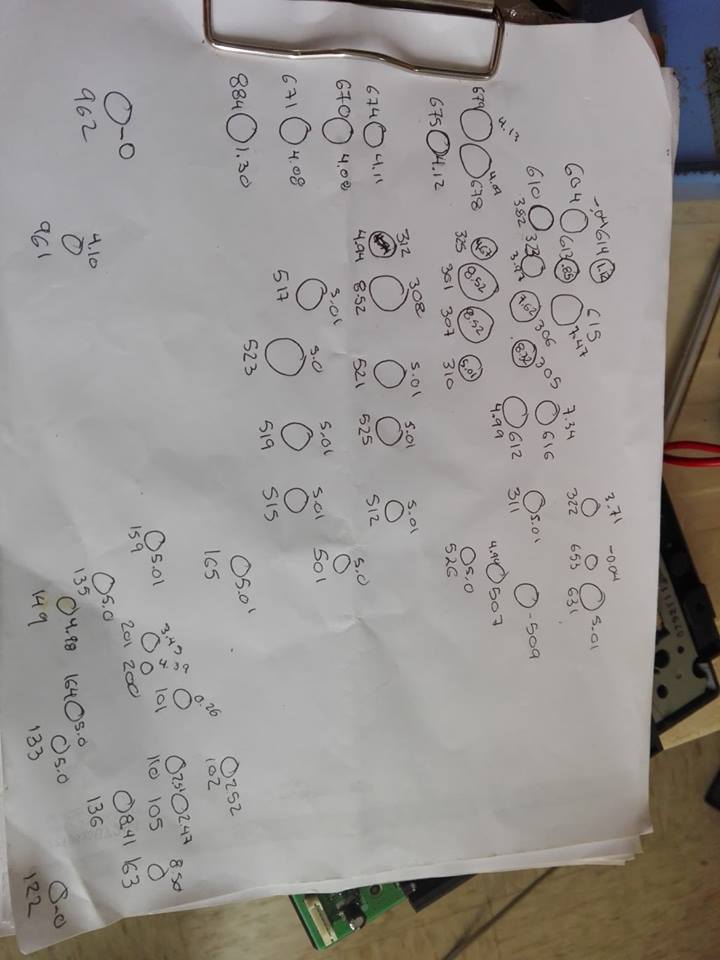 604 -.04 614 1.2
610 3.82 323 3.47 613 .85
615 7.47
7.62 306
305
679 4.12
675 4.12
678 4.09
674 4.11
670 4.08
671 4.08
884 1.30
962 -0
961 4.10
312 4.94
308 8.52
325 4.63
301 8.52
307 8.52
310 5.01
517 5.01
523 5.0
521 5.01
519 5.01
525 5.01
515 5.01
512 5.01
501 5.0
616 7.34
612 4.99
322 3.71
311 5.01
653 -0.04
631 5.01
526 5.0
507 4.94
-509
159 5.01
165 5.01
135 5.0
149 4.98
201 3.49
200
101 0.26
164 5.0
133 5.0
102 2.52
110 2.51
105 2.47
136 8.41
163 8.50
122 -0